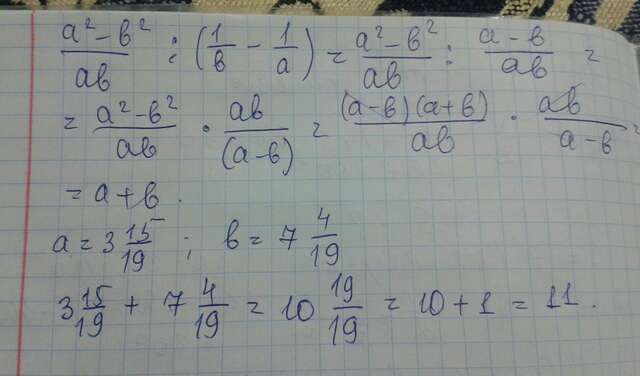 (a² - b²)/(ab) : (1/b - 1/a) = (a² - b²)/(ab) : (a - b)/(ab) =
= (a² - b²)/(ab) · (ab)/((a - b)) = ((a - b)(a + b))/(ab) · (ab)/(a - b) =
= a + b.
a = 3 15/19 ; b = 7 4/19
3 15/19 + 7 4/19 = 10 19/19 = 10 + 1 = 11.